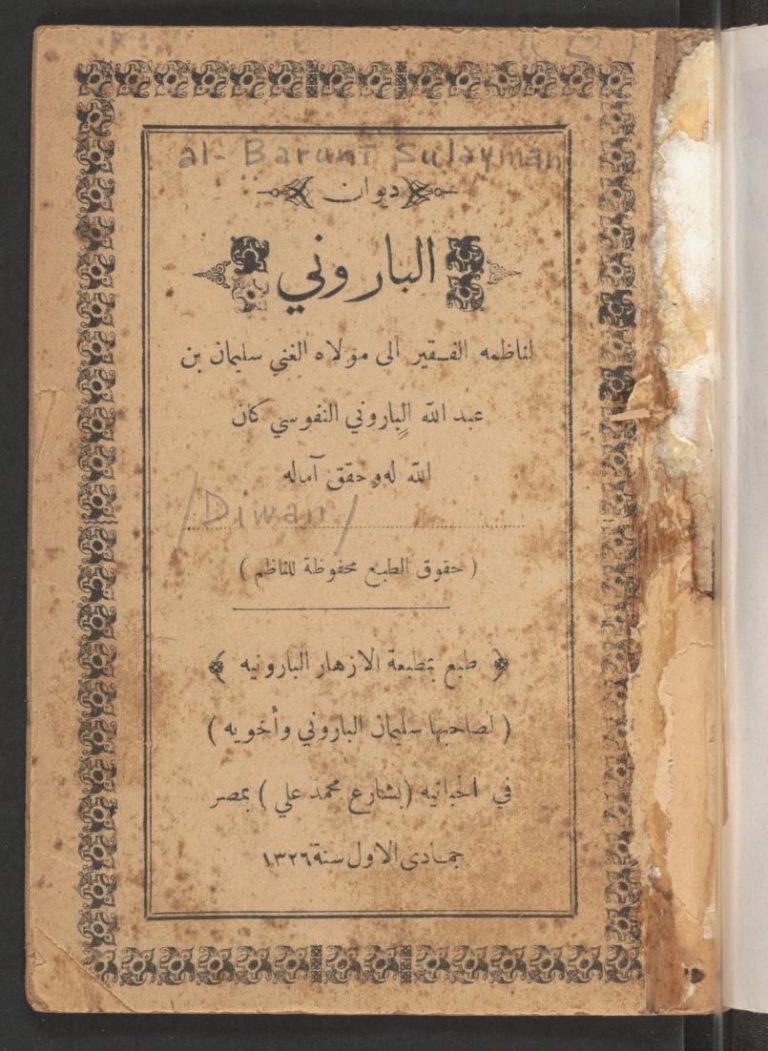 al- Barunī Sulayman
ديوان
الباروني
لناظمه الفقير الى مولاه الغني سليمان بن
عبد الله الباروني النفوسي كان
الله له وحقق آماله
/Diwan/
( حقوق الطبع محفوظة للناظم )
﴿ طبع بمطبعة الازهار البارونيه ﴾
( لصاحبها سليمان الباروني وأخويه )
في الحبانيه ( بشارع محمد علي ) بمصر
جمادى الاول سنة ١٣٢٦